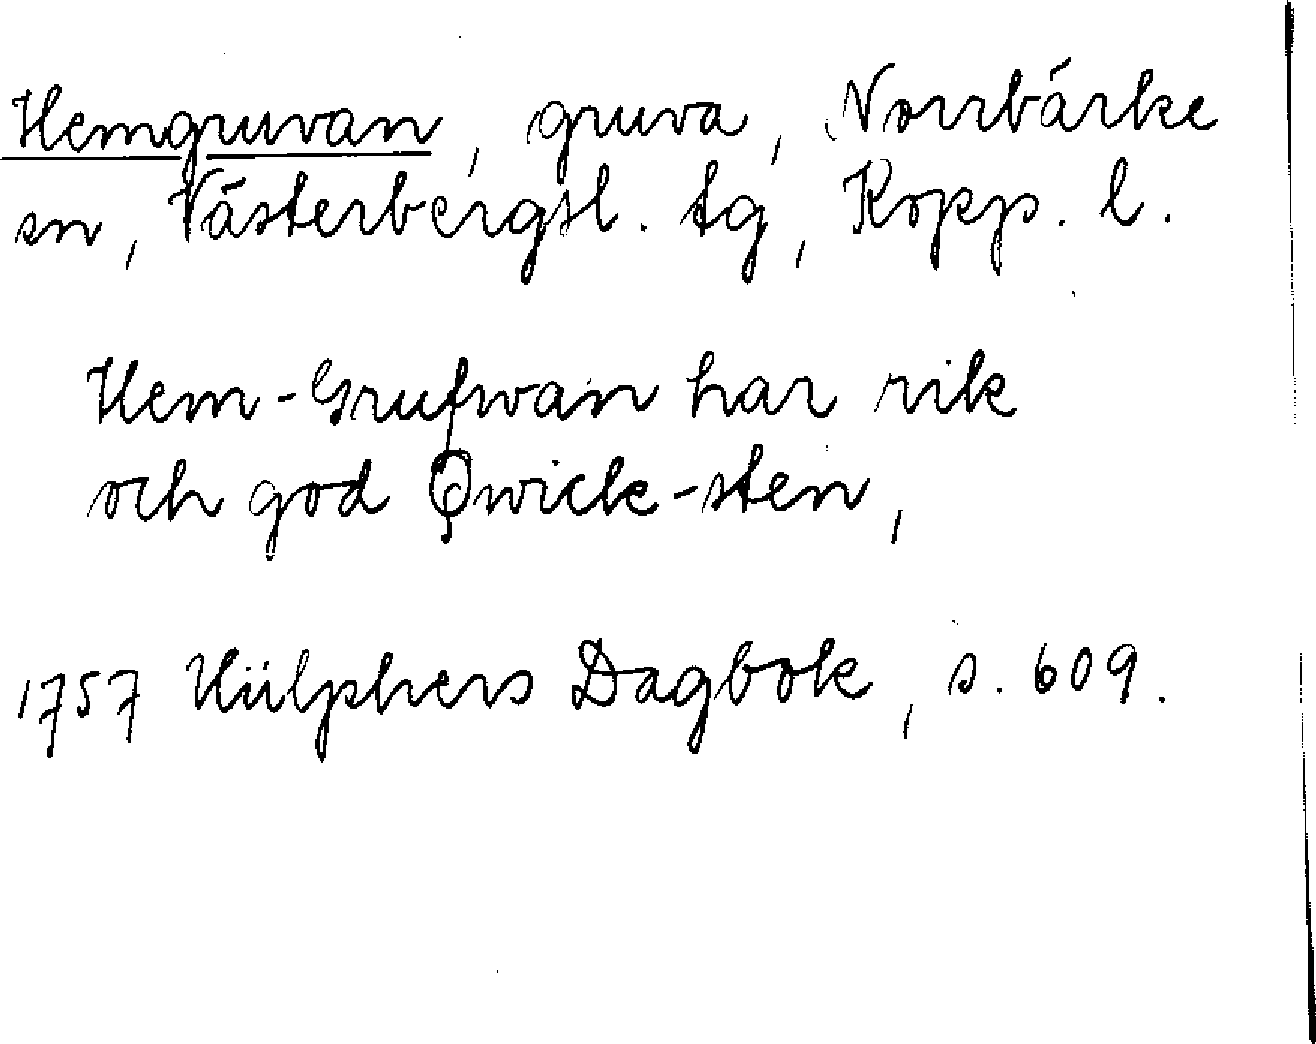 Hemgruvan, gruva, Norrbärke
sn, Västerbergsl. tg, Kopp. l.
Hem-Grufwan har rik
och god Qwick-sten,
1757 Hülphers Dagbok, s. 609.